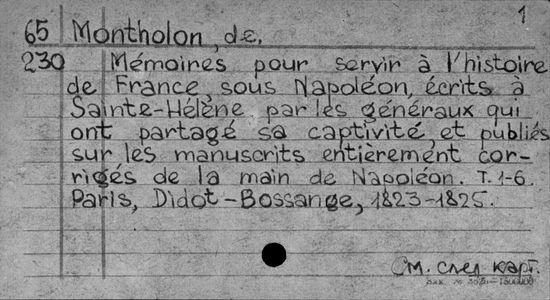 1
65 Montholon, de.
230 Mémoires pour servir à l'histoire
de France, sous Napoléon, écrits à
Sainte-Hélène par les généraux qui
ont partagé sa captivité, et publiés
sur les manuscrits entièrement cor-
rigés de la main de Napoléon. T. 1-6.
Paris, Didot-Bossange, 1823-1825.
См. след карт.